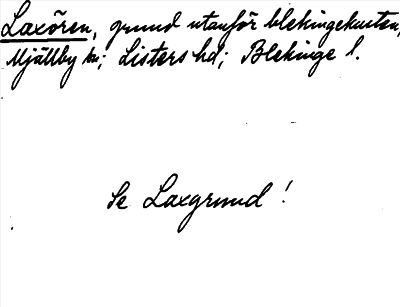 Laxören, grund utanför blekingekusten,
Mjällby sn; Listers hd; Blekinge l.
Se Laxgrund!